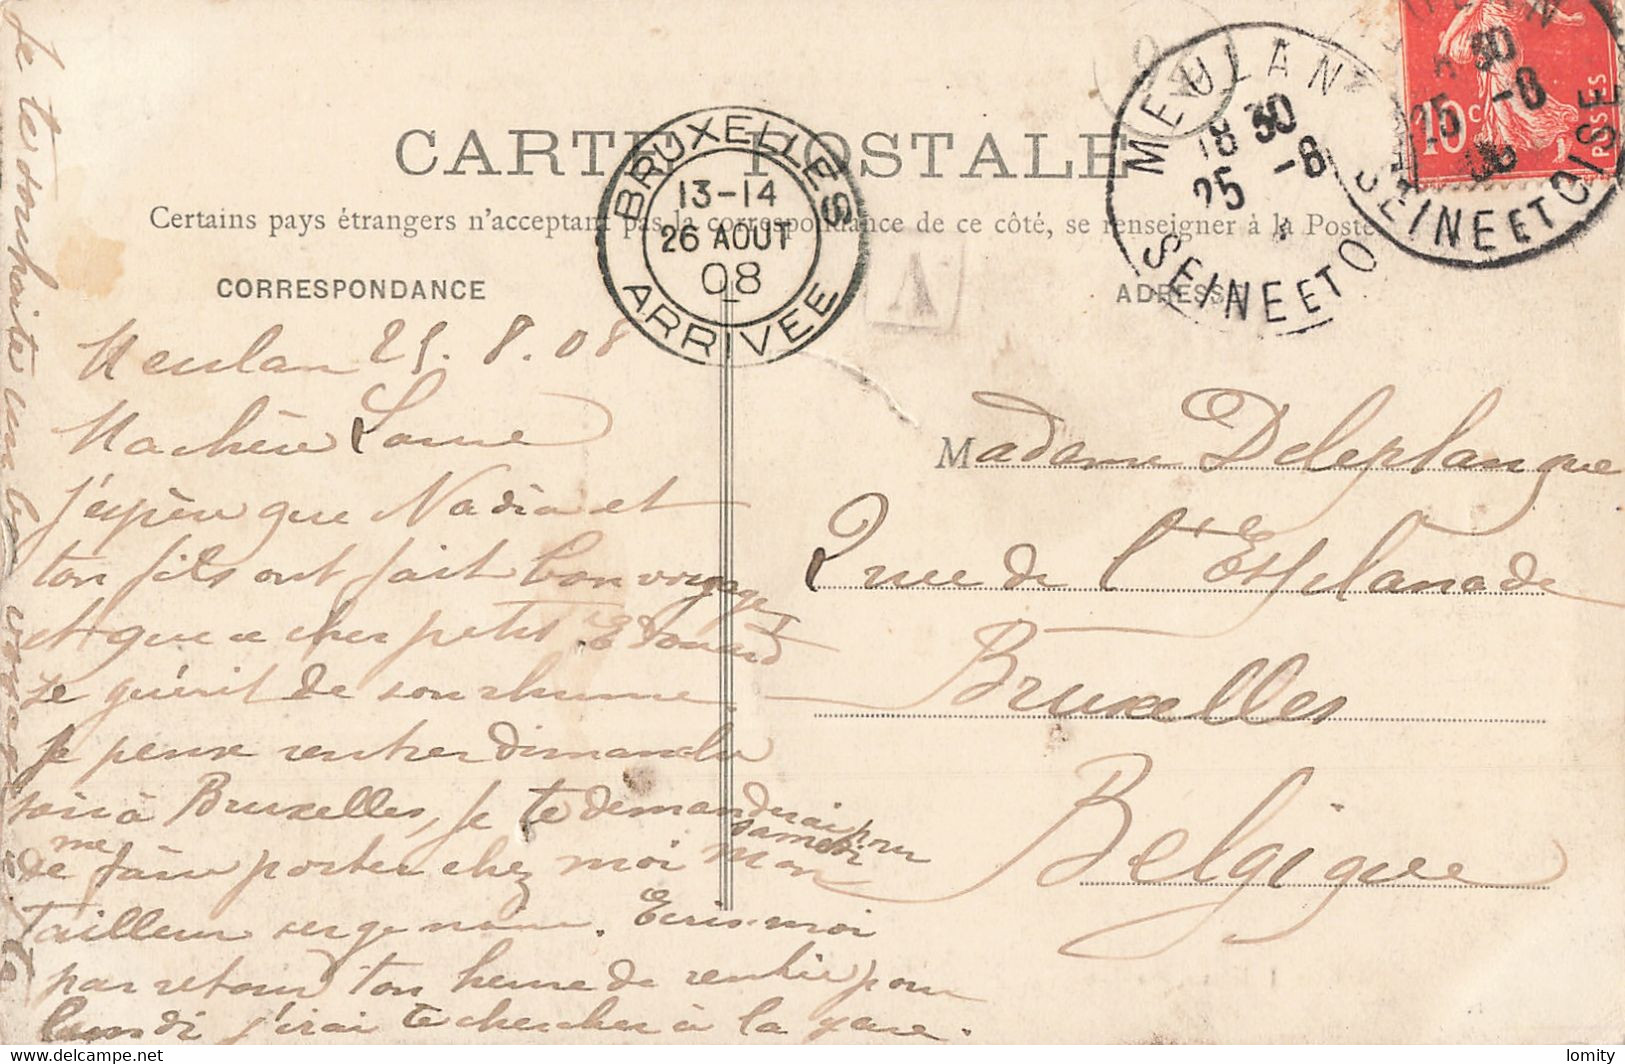 CARTE POSTALE
Certains pays étrangers n'acceptant pas la correspondance de ce côté, se renseigner à la Poste
CORRESPONDANCE
ADRESSE
BRUXELLES
13-14
26 AOUT
08
ARRIVEE
MEULAN
18 30
25 -8
SEINE ET O
18 30
25 -8
08
SEINE ET OISE
10c
POSTES
Meulan 25.8.08
Ma chère Laure
j'espère que Nadia et
ton fils ont fait bon voyage
et que ce cher petit Edouard
se guérit de son rhume.
Je pense rentrer dimanche
soir à Bruxelles, je te demanderai pour
samedi
de me faire porter chez moi mon
tailleur serge noire. Ecris-moi
par retour ton heure de rentrée pour
lundi j'irai te chercher à la gare.
Je te souhaite un bon voyage
Madame Deleplanque
2 rue de l'Esplanade
Bruxelles
Belgique
delcampe.net
lomity